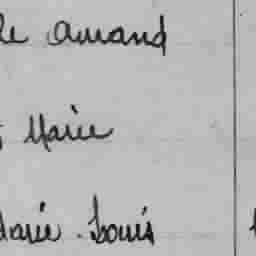 Amand
Marie
Marie-Louis